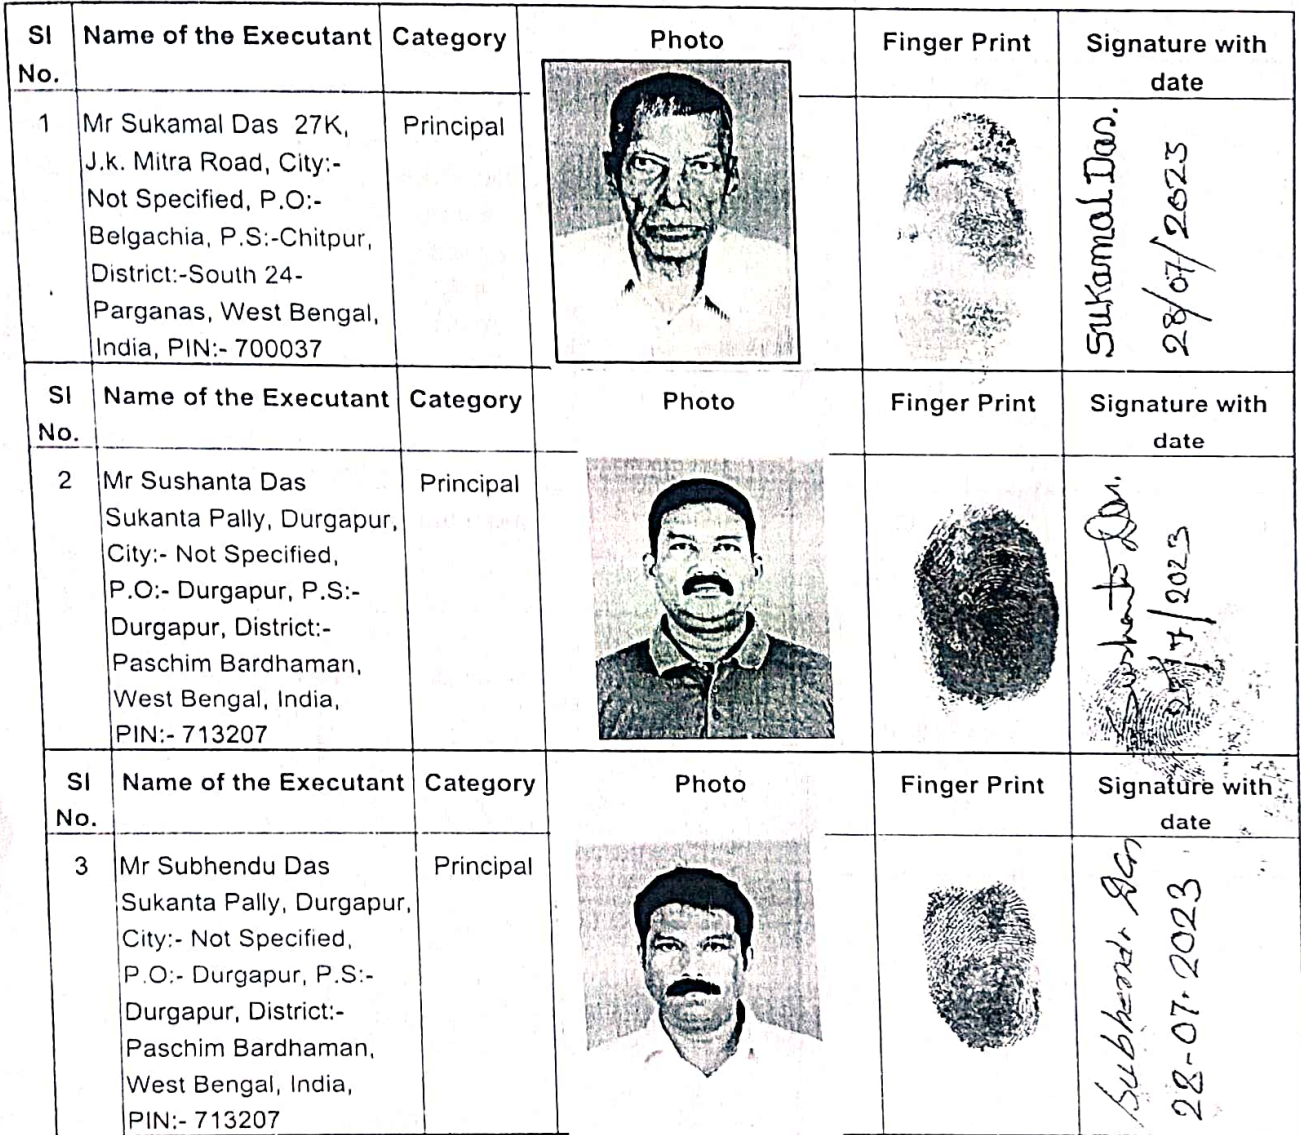 Sl No. Name of the Executant Category Photo Finger Print Signature with date
1 Mr Sukamal Das 27K, Principal
J.k. Mitra Road, City:-
Not Specified, P.O:-
Belgachia, P.S:-Chitpur,
District:-South 24-
Parganas, West Bengal,
India, PIN:- 700037
Sukamal Das.
28/07/2023
Sl No. Name of the Executant Category Photo Finger Print Signature with date
2 Mr Sushanta Das Principal
Sukanta Pally, Durgapur,
City:- Not Specified,
P.O:- Durgapur, P.S:-
Durgapur, District:-
Paschim Bardhaman,
West Bengal, India,
PIN:- 713207
Sushanta Das.
/7/2023
Sl No. Name of the Executant Category Photo Finger Print Signature with date
3 Mr Subhendu Das Principal
Sukanta Pally, Durgapur,
City:- Not Specified,
P.O:- Durgapur, P.S:-
Durgapur, District:-
Paschim Bardhaman,
West Bengal, India,
PIN:- 713207
Subhendu Das
28-07-2023